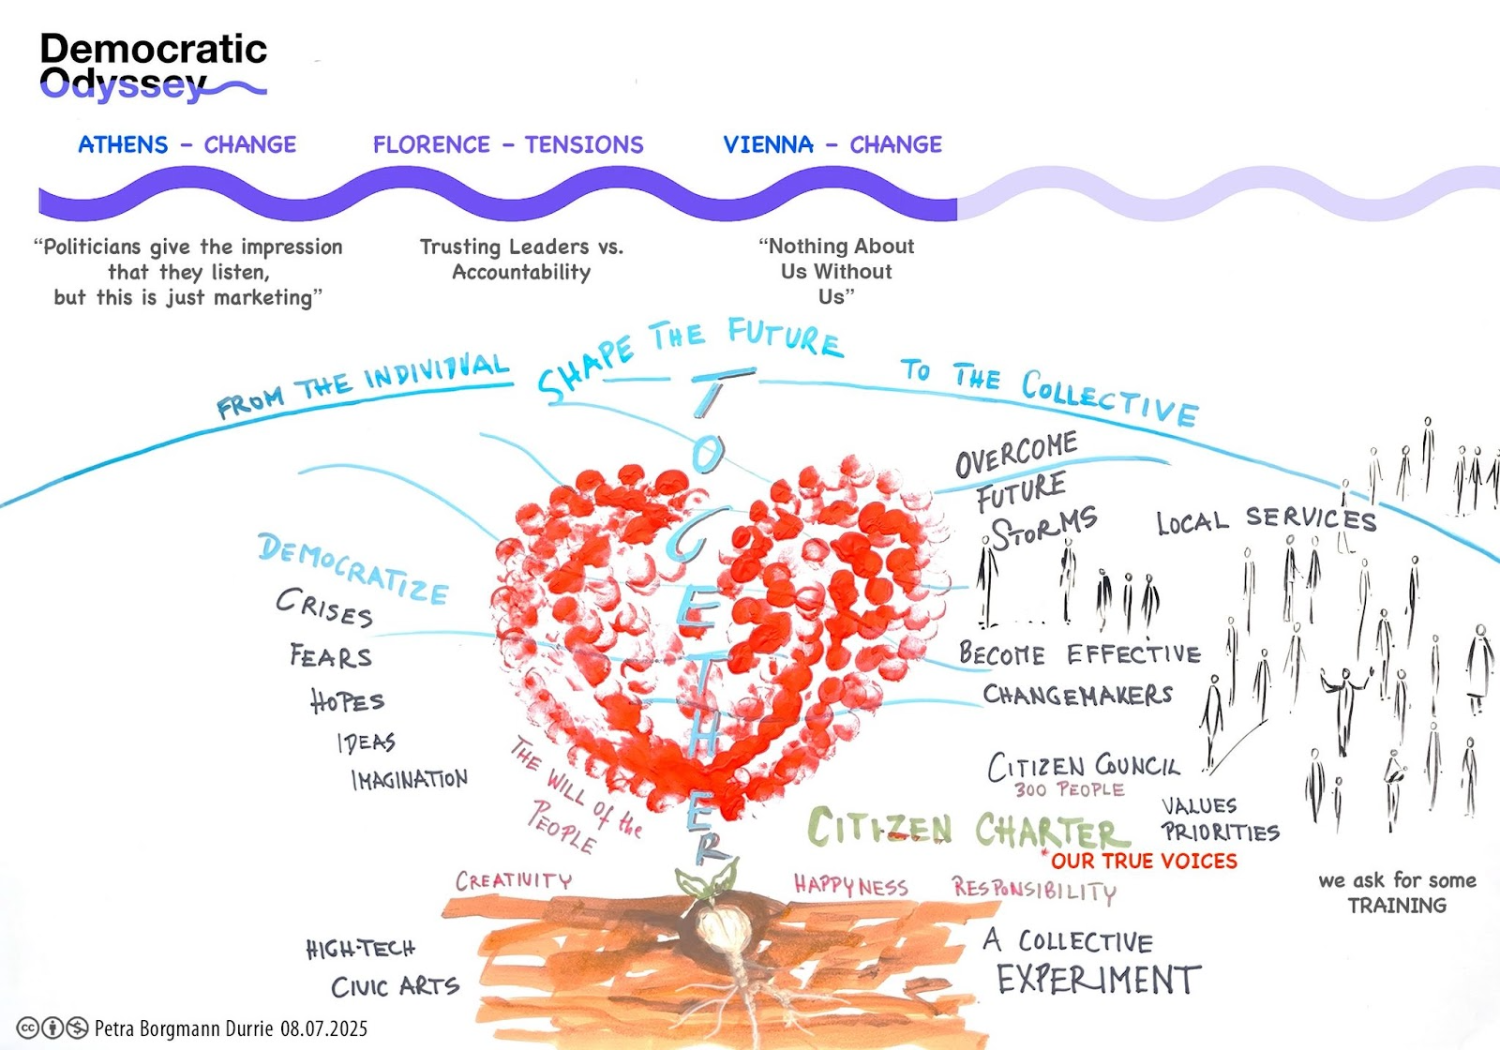 Democratic
Odyssey
ATHENS - CHANGE
FLORENCE - TENSIONS
VIENNA - CHANGE
"Politicians give the impression
that they listen,
but this is just marketing"
Trusting Leaders vs.
Accountability
"Nothing About
Us Without
Us"
FROM THE INDIVIDUAL
SHAPE THE FUTURE
TO THE COLLECTIVE
TOGETHER
DEMOCRATIZE
CRISES
FEARS
HOPES
IDEAS
IMAGINATION
OVERCOME
FUTURE
STORMS
LOCAL SERVICES
BECOME EFFECTIVE
CHANGEMAKERS
THE WILL of the
PEOPLE
CITIZEN COUNCIL
300 PEOPLE
CITIZEN CHARTER
VALUES
PRIORITIES
*OUR TRUE VOICES
we ask for some
TRAINING
CREATIVITY
HAPPYNESS
RESPONSIBILITY
HIGH-TECH
CIVIC ARTS
A COLLECTIVE
EXPERIMENT
cc Petra Borgmann Durrie 08.07.2025